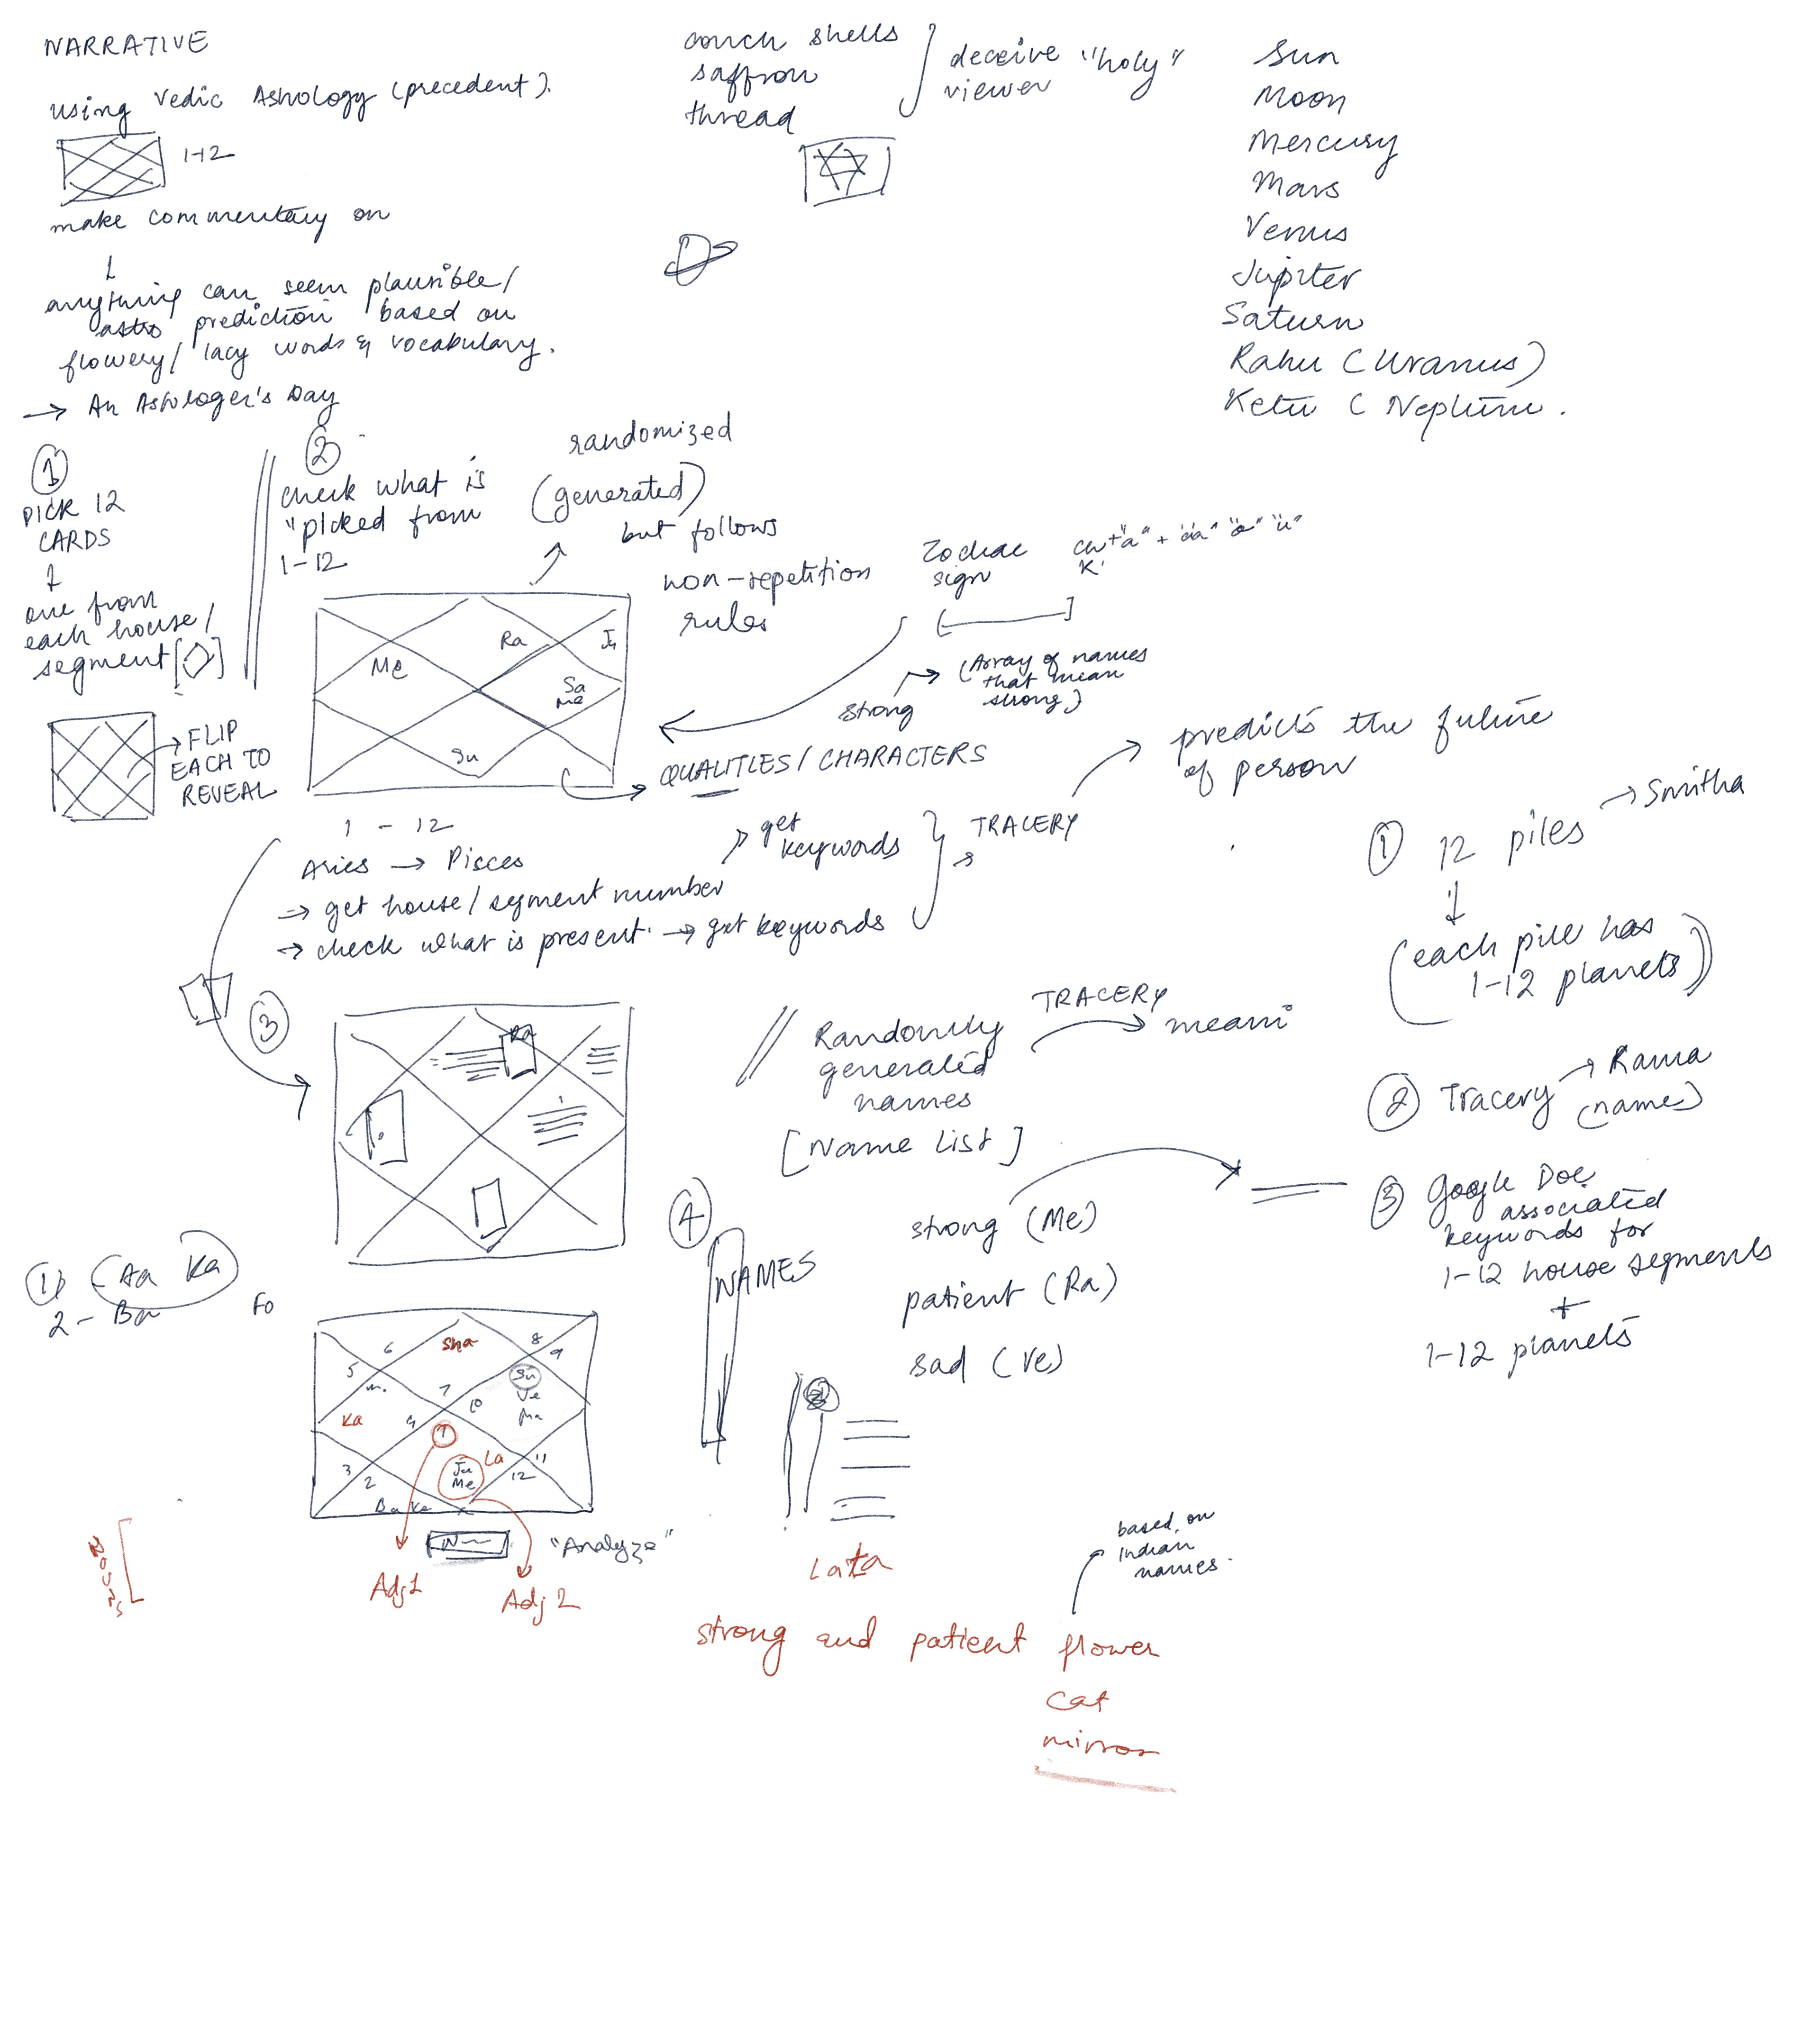 NARRATIVE
using Vedic Astrology (precedent).
1-12
make commentary on
anything can seem plausible/
astro prediction based on
flowery/ lacy words & vocabulary.
→ An Astrologer's Day
conch shells
saffron
thread
deceive "holy"
viewer
Sun
Moon
Mercury
Mars
Venus
Jupiter
Saturn
Rahu (Uranus)
Ketu ( Neptune.
1
PICK 12
CARDS
one from
each house/
segment [◇]
→ FLIP
EACH TO
REVEAL
2
check what is
"picked from
1-12
randomized
(generated)
but follows
non-repetition
rules
Zodiac
sign
"a" + "aa" "u"
K
strong
(Array of names
that mean
strong)
Me
Ra
Ju
Sa
Me
Su
QUALITIES / CHARACTERS
1 - 12
Aries → Pisces
→ get house/ segment number
get
keywords
→ check what is present. → get keywords
TRACERY
predicts the future
of person
1 12 piles → Smitha
(each pile has
1-12 planets)
2 Tracery → Rama
(names)
3 Google Doc
associated
keywords for
1-12 house segments
+
1-12 planets
3
Ra
Randomly
generated
names
[Name List]
TRACERY
4
NAMES
strong (Me)
patient (Ra)
sad (Ve)
1) (Aa Ka)
2 - Ba
Fo
6
Sha
8
5
9
m.
7
Su
Ve
Ma
10
Ka
4
1
La
11
3
2
Ju
Me
12
Ba Ke
"Analyze"
Adj 1
Adj 2
NOUNS
Lata
based on
Indian
names.
strong and patient flower
cat
mirror